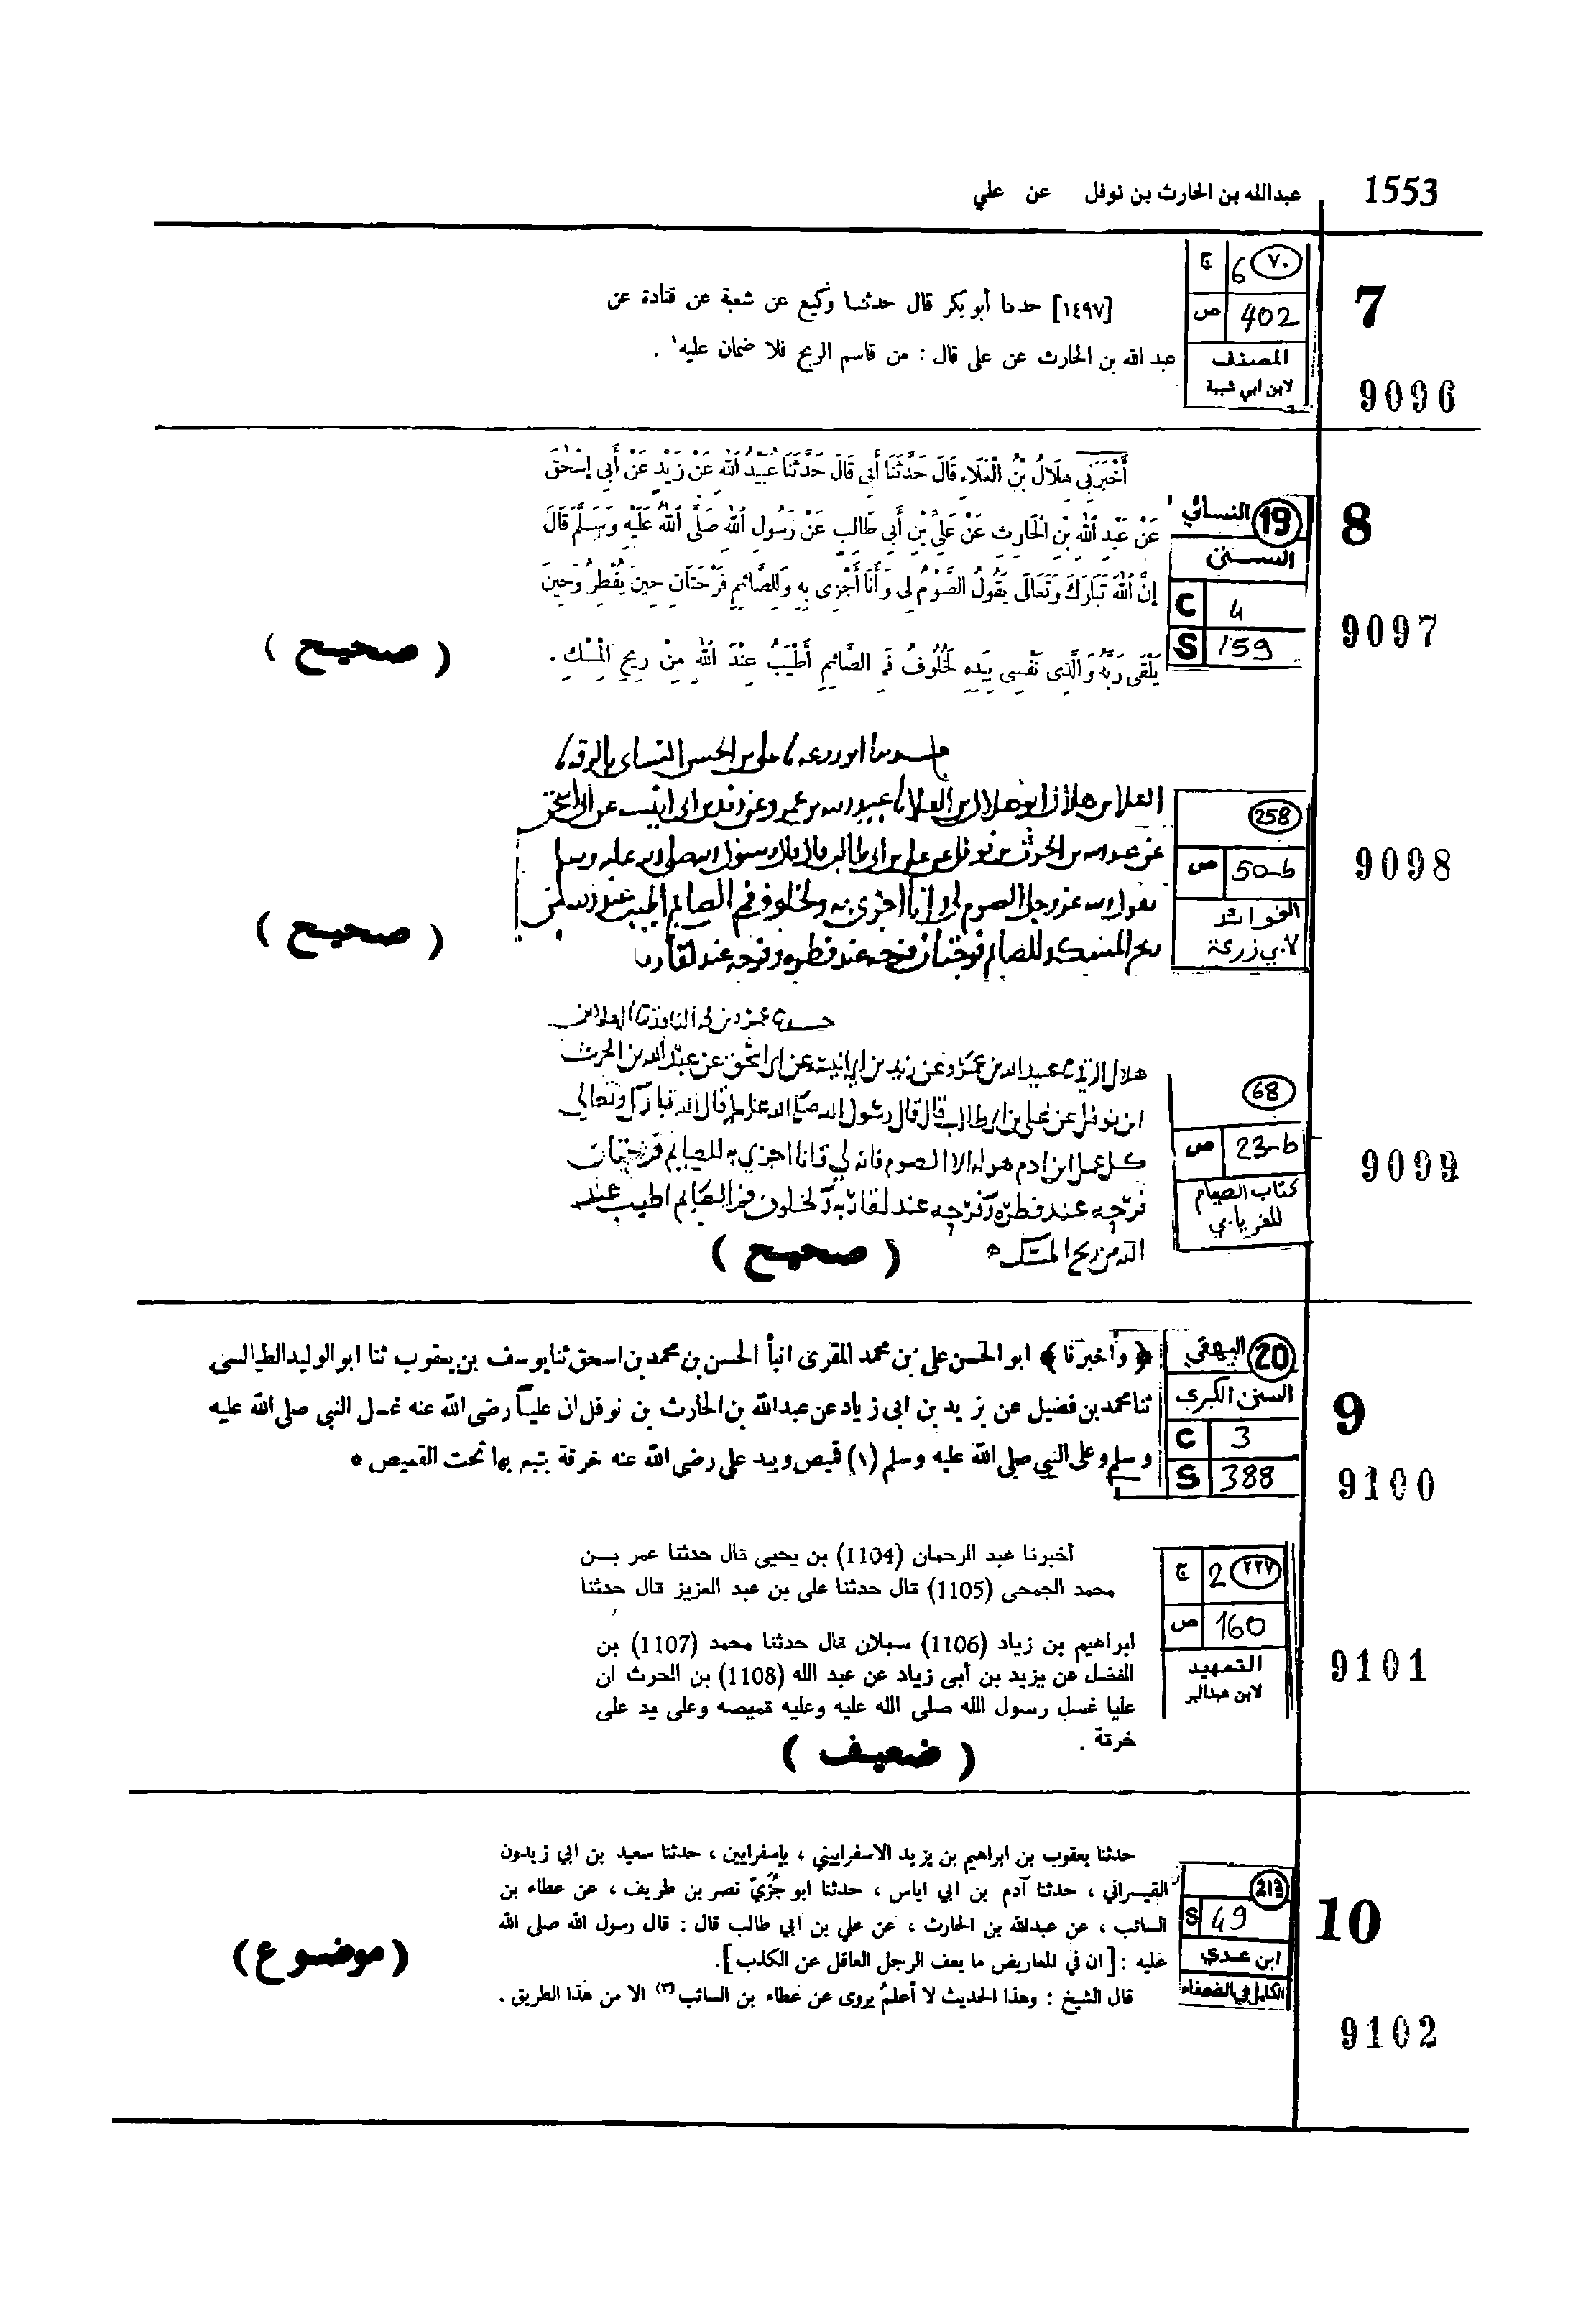 1553
عبدالله بن الحارث بن نوفل عن علي
7
9096
ج 6 ٧٠
ص 402
المصنف
لابن ابي شيبة
[١٤٩٧] حدثنا أبو بكر قال حدثنا وكيع عن شعبة عن قتادة عن
عبد الله بن الحارث عن على قال : من قاسم الربح فلا ضمان عليه .
8
9097
النسائي 19
السنن
C 4
S 159
أَخْبَرَنِي هِلَالُ بْنُ الْعَلَاءِ قَالَ حَدَّثَنَا أَبِي قَالَ حَدَّثَنَا عُبَيْدُ اللهِ عَنْ زَيْدٍ عَنْ أَبِي إِسْحٰقَ
عَنْ عَبْدِ اللهِ بْنِ الْحَارِثِ عَنْ عَلِيِّ بْنِ أَبِي طَالِبٍ عَنْ رَسُولِ اللهِ صَلَّى اللهُ عَلَيْهِ وَسَلَّمَ قَالَ
إِنَّ اللهَ تَبَارَكَ وَتَعَالَى يَقُولُ الصَّوْمُ لِي وَأَنَا أَجْزِى بِهِ وَلِلصَّائِمِ فَرْحَتَانِ حِينَ يُفْطِرُ وَحِينَ
يَلْقَى رَبَّهُ وَالَّذِى نَفْسِى بِيَدِهِ لَخُلُوفُ فَمِ الصَّائِمِ أَطْيَبُ عِنْدَ اللهِ مِنْ رِيحِ الْمِسْكِ .
( صحيح )
9098
258
ص 50-b
الفوائد
لابي زرعة
عن عبد الله بن الحرث بن نوفل عن علي بن ابي طالب قال قال رسول الله صلى الله عليه وسلم
يقول الله عز وجل الصوم لي وانا اجزي به ولخلوف فم الصائم اطيب عند الله من
ريح المسك وللصائم فرحتان فرحه عند فطره وفرحه عند لقا ربه
( صحيح )
9099
68
ص 23-b
كتاب الصيام
للفريابي
هلال الرقي عبيد الله بن عمرو عن زيد بن ابي انيسه عن ابي اسحق عن عبد الله بن الحرث
ابن نوفل عن علي بن ابي طالب قال قال رسول الله صلى الله عليه قال الله تبارك وتعالي
كل عمل ابن ادم هو له الا الصوم فانه لي وانا اجزي به للصايم فرحتان
فرحه عند فطره وفرحه عند لقا ربه ولخلوف فم الصايم اطيب عند
الله من ريح المسك
( صحيح )
9
9100
البيهقي 20
السنن الكبرى
C 3
S 388
﴿ وأخبرنا ﴾ ابو الحسن علي بن محمد المقرى انبأ الحسن بن محمد بن اسحق ثنا يوسف بن يعقوب ثنا ابو الوليد الطيالسى
ثنا محمد بن فضيل عن يزيد بن ابى زياد عن عبدالله بن الحارث بن نوفل ان علياً رضى الله عنه غسل النبي صلى الله عليه
وسلم وعلى النبي صلى الله عليه وسلم (١) قميص وبيد على رضى الله عنه خرقة يتبع بها تحت القميص *
9101
ج 2 ٢٢٧
ص 160
التمهيد
لابن عبدالبر
أخبرنا عبد الرحمان (1104) بن يحيى قال حدثنا عمر بن
محمد الجمحى (1105) قال حدثنا على بن عبد العزيز قال حدثنا
ابراهيم بن زياد (1106) سبلان قال حدثنا محمد (1107) بن
الفضل عن يزيد بن أبى زياد عن عبد الله (1108) بن الحرث ان
عليا غسل رسول الله صلى الله عليه وعليه قميصه وعلى يد على
خرقة .
( ضعيف )
10
9102
213
S 49
ابن عدي
الكامل في الضعفاء
حدثنا يعقوب بن ابراهيم بن يزيد الاسفراييني ، بإسفرايين ، حدثنا سعيد بن ابي زيدون
القيسراني ، حدثنا آدم بن ابي اياس ، حدثنا ابو جُزَيّ نصر بن طريف ، عن عطاء بن
السائب ، عن عبدالله بن الحارث ، عن علي بن أبي طالب قال : قال رسول الله صلى الله
عليه : [ ان في المعاريض ما يعف الرجل العاقل عن الكذب ].
قال الشيخ : وهذا الحديث لا أعلمُ يروى عن عطاء بن السائب(٣) الا من هذا الطريق .
(موضوع)